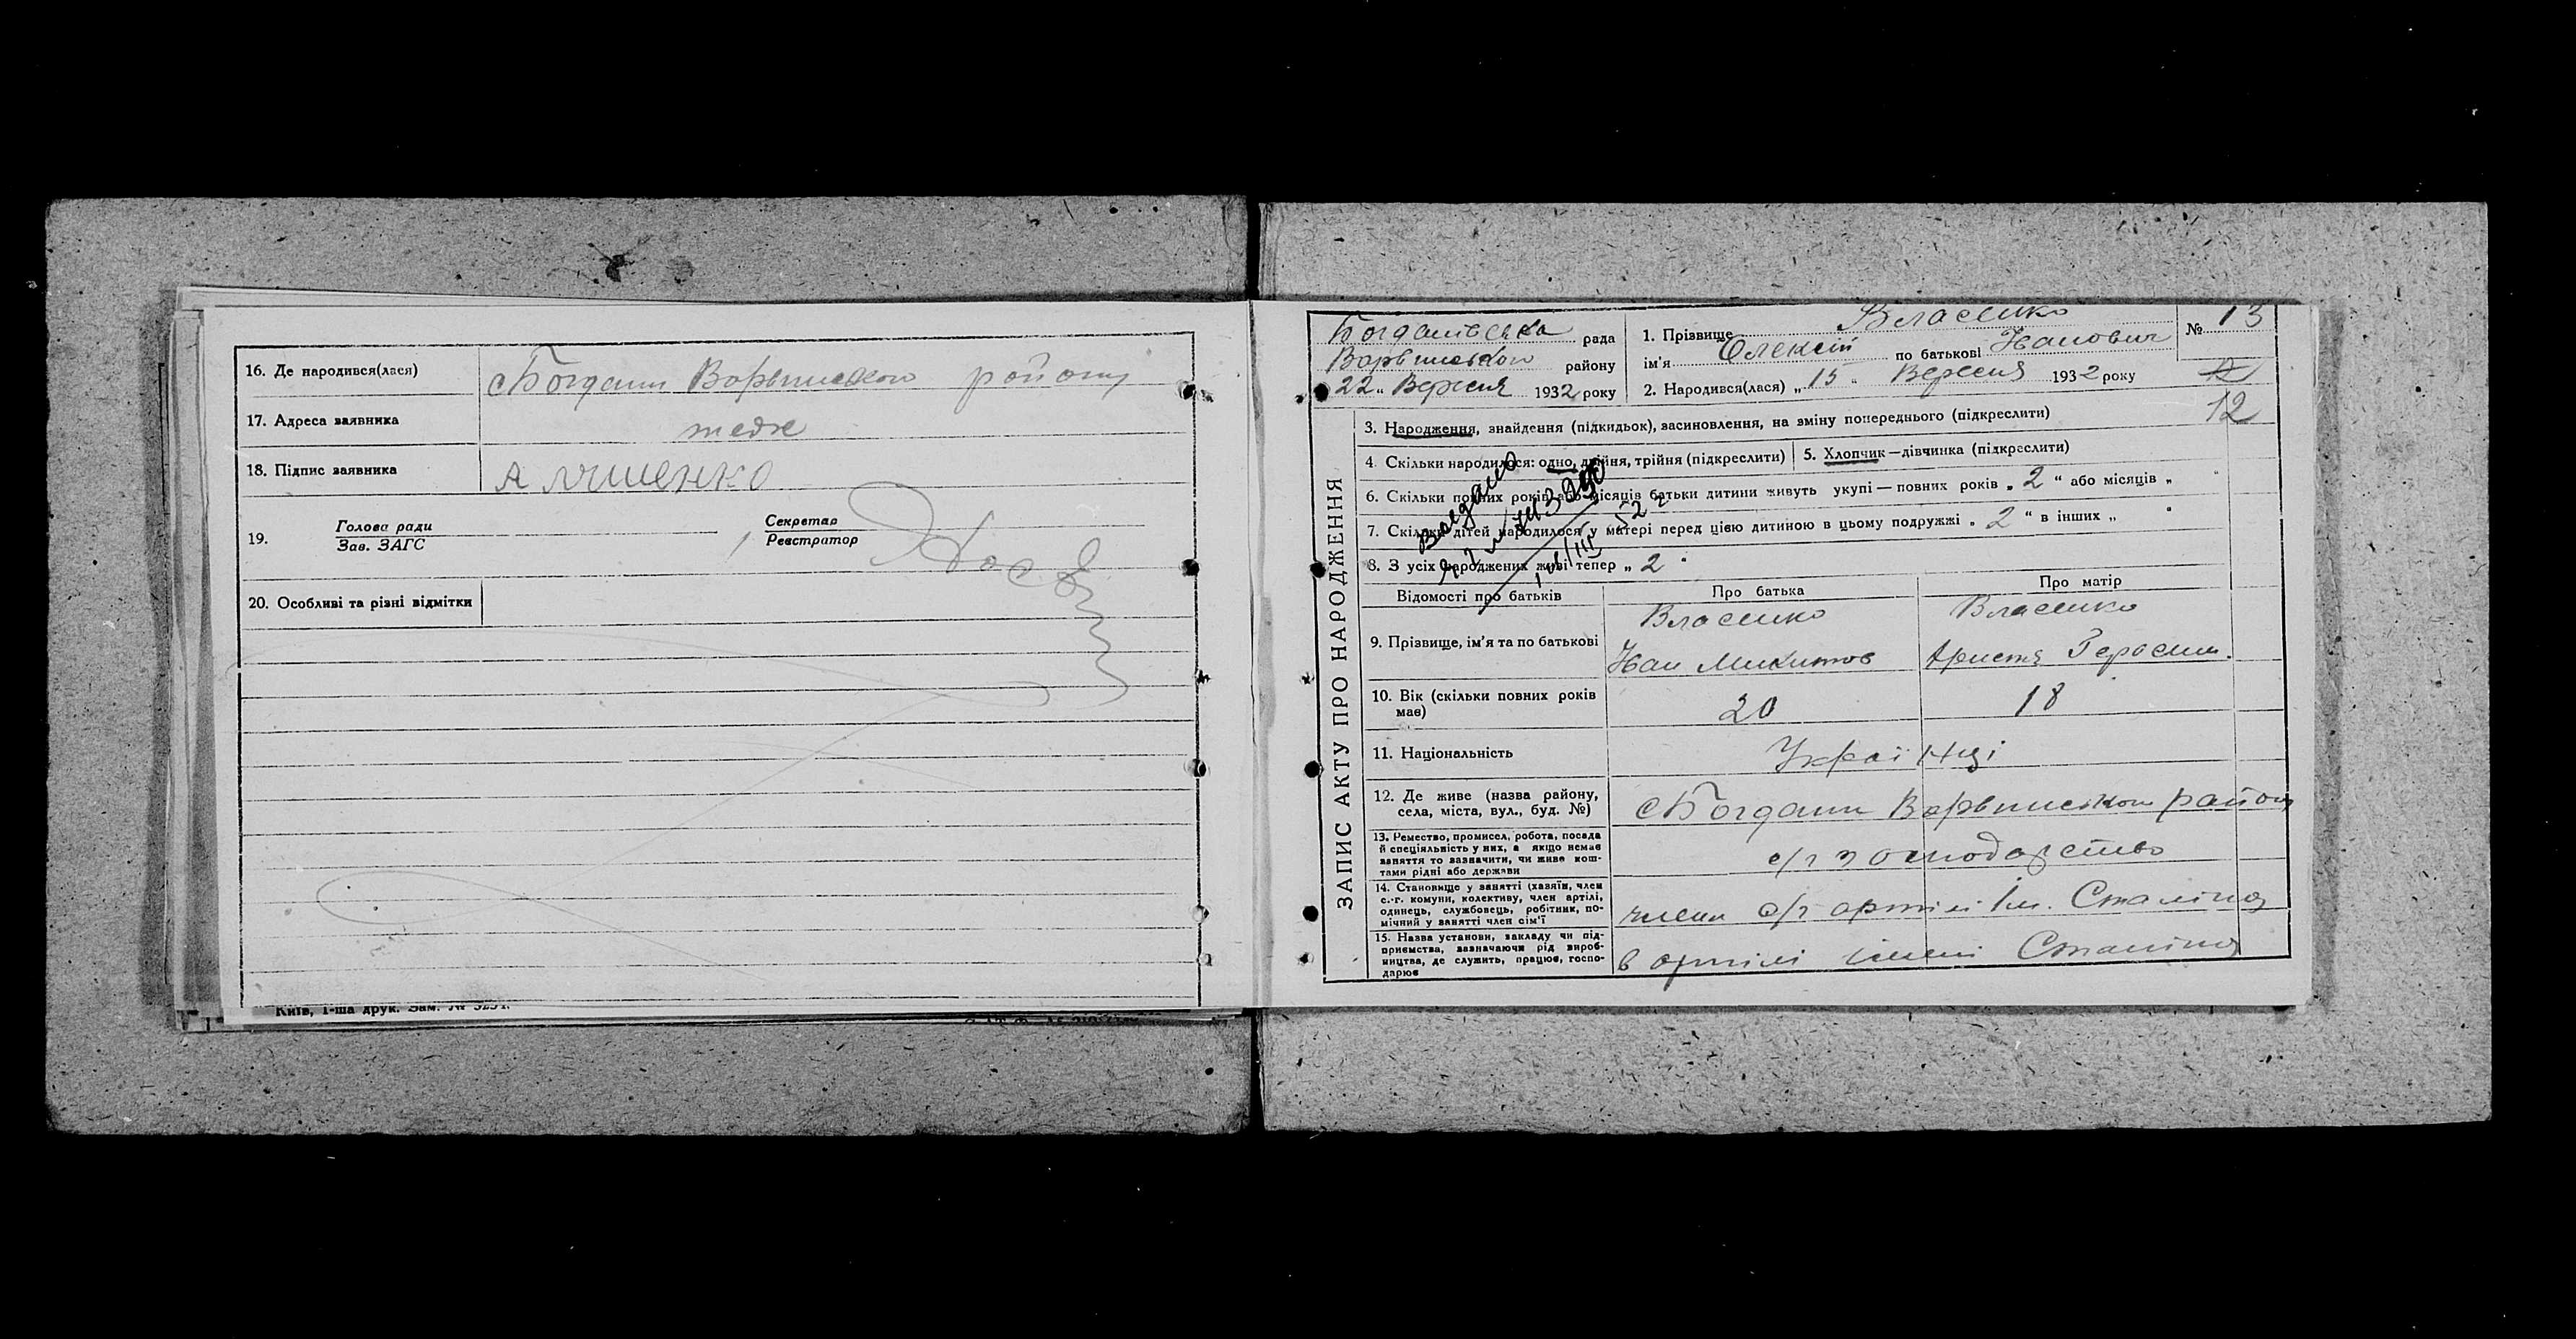 16. Де народився(лася)
с Богдани Варвинського району
17. Адреса заявника
теж
18. Підпис заявника
19. Голова ради
Зав. ЗАГС
Секретар
Реєстратор
20. Особливі та різні відмітки
Київ, 1-ша друк. Зам. №
ЗАПИС АКТУ ПРО НАРОДЖЕННЯ
Богданівська рада
Варвинського району
22 „ Вересня 1932 року
1. Прізвище Власенко
ім'я Олексій по батькові Іванович
2. Народився(лася) „ 15 " Вересня 1932 року
№ 13
12
3. Народження, знайдення (підкидьок), засиновлення, на зміну попереднього (підкреслити)
4. Скільки народилося: одно, двійня, трійня (підкреслити)
5. Хлопчик—дівчинка (підкреслити)
6. Скільки повних років або місяців батьки дитини живуть укупі — повних років „ 2 " або місяців „ "
7. Скільки дітей народилося у матері перед цією дитиною в цьому подружжі „ 2 " в інших „ "
8. З усіх народжених живі тепер „ 2 "
Відомості про батьків
Про батька
Про матір
9. Прізвище, ім'я та по батькові
Власенко
Іван Микитов
Власенко
Христя Герасим.
10. Вік (скільки повних років має)
20
18
11. Національність
Українці
12. Де живе (назва району, села, міста, вул., буд. №)
с Богдани Варвинського району
13. Ремество, промисел, робота, посада й спеціяльність у них, а якщо немає заняття то зазначити, чи живе коштами рідні або держави
с/г господарство
14. Становище у занятті (хазяїн, член с.-г. комуни, колективу, член артілі, одинець, службовець, робітник, помічний у занятті член сім'ї
члени с/г артілі ім. Сталіна
15. Назва установи, закладу чи підприємства, зазначаючи рід виробництва, де служить, працює, господарює
в артілі імені Сталіна